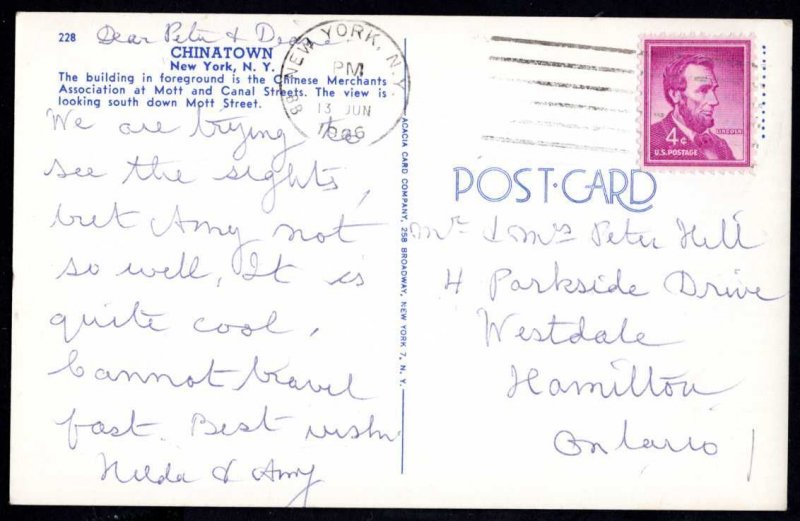 228 Dear Peter &
CHINATOWN
New York, N. Y.
The building in foreground is the Chinese Merchants
Association at Mott and Canal Streets. The view is
looking south down Mott Street.
We are trying to
see the sights,
but Amy not
so well, It is
quite cool,
Cannot travel
fast. Best wishes
Hilda & Amy
ACACIA CARD COMPANY, 258 BROADWAY, NEW YORK 7, N. Y.
NEW YORK, N.Y.
PM
13 JUN
LINCOLN
4¢
U.S. POSTAGE
POST-CARD
Mr & Mrs Peter Hill
4 Parkside Drive
Westdale
Hamilton
Ontario